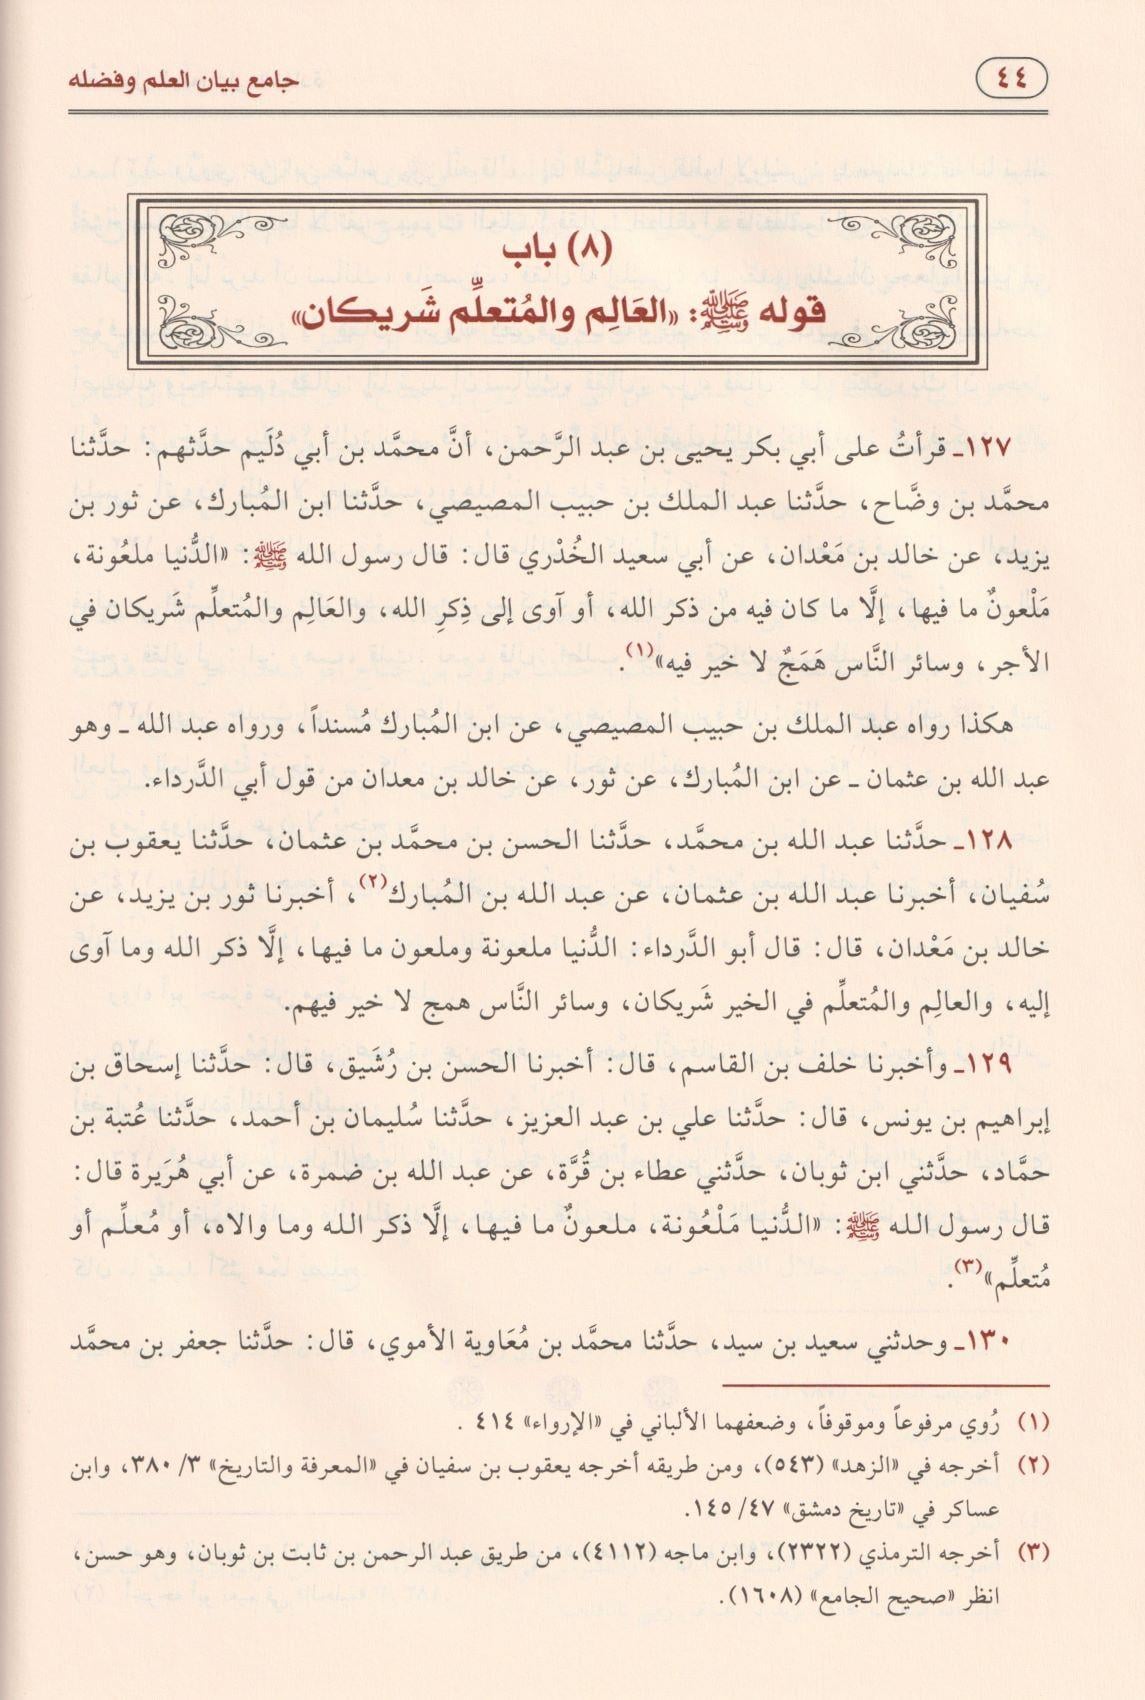 ٤٤
جامع بيان العلم وفضله
(٨) باب
قوله ﷺ: «العَالِم والمُتعلِّم شَريكان»
١٢٧ـ قرأتُ على أبي بكر يحيى بن عبد الرَّحمن، أنَّ محمَّد بن أبي دُلَيم حدَّثهم: حدَّثنا
محمَّد بن وضَّاح، حدَّثنا عبد الملك بن حبيب المصيصي، حدَّثنا ابن المُبارك، عن ثور بن
يزيد، عن خالد بن مَعْدان، عن أبي سعيد الخُدْري قال: قال رسول الله ﷺ: «الدُّنيا ملعُونة،
مَلْعونٌ ما فيها، إلَّا ما كان فيه من ذكر الله، أو آوى إلى ذِكرِ الله، والعَالِم والمُتعلِّم شَريكان في
الأجر، وسائر النَّاس هَمَجٌ لا خير فيه»(١).
هكذا رواه عبد الملك بن حبيب المصيصي، عن ابن المُبارك مُسنداً، ورواه عبد الله ـ وهو
عبد الله بن عثمان ـ عن ابن المُبارك، عن ثور، عن خالد بن معدان من قول أبي الدَّرداء.
١٢٨ـ حدَّثنا عبد الله بن محمَّد، حدَّثنا الحسن بن محمَّد بن عثمان، حدَّثنا يعقوب بن
سُفيان، أخبرنا عبد الله بن عثمان، عن عبد الله بن المُبارك(٢)، أخبرنا ثور بن يزيد، عن
خالد بن مَعْدان، قال: قال أبو الدَّرداء: الدُّنيا ملعونة وملعون ما فيها، إلَّا ذكر الله وما آوى
إليه، والعالِم والمُتعلِّم في الخير شَريكان، وسائر النَّاس همج لا خير فيهم.
١٢٩ـ وأخبرنا خلف بن القاسم، قال: أخبرنا الحسن بن رُشَيق، قال: حدَّثنا إسحاق بن
إبراهيم بن يونس، قال: حدَّثنا علي بن عبد العزيز، حدَّثنا سُليمان بن أحمد، حدَّثنا عُتبة بن
حمَّاد، حدَّثني ابن ثوبان، حدَّثني عطاء بن قُرَّة، عن عبد الله بن ضمرة، عن أبي هُرَيرة قال:
قال رسول الله ﷺ: «الدُّنيا مَلْعُونة، ملعونٌ ما فيها، إلَّا ذكر الله وما والاه، أو مُعلِّم أو
مُتعلِّم»(٣).
١٣٠ـ وحدثني سعيد بن سيد، حدَّثنا محمَّد بن مُعَاوية الأموي، قال: حدَّثنا جعفر بن محمَّد
(١) رُوي مرفوعاً وموقوفاً، وضعفهما الألباني في «الإرواء» ٤١٤ .
(٢) أخرجه في «الزهد» (٥٤٣)، ومن طريقه أخرجه يعقوب بن سفيان في «المعرفة والتاريخ» ٣/ ٣٨٠، وابن
عساكر في «تاريخ دمشق» ٤٧/ ١٤٥.
(٣) أخرجه الترمذي (٢٣٢٢)، وابن ماجه (٤١١٢)، من طريق عبد الرحمن بن ثابت بن ثوبان، وهو حسن،
انظر «صحيح الجامع» (١٦٠٨).